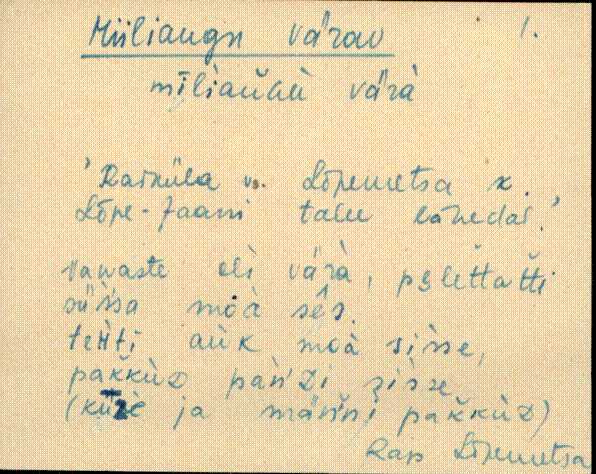 Miiliaugu värav 1.
mīlìau̯Gù värà
'Raiküla v. Lõpemetsa k.
Lõpe-Jaani talu lähedal.'
vanaste olì värà, pəletťatťi
süsìa moà sês.
tehti aùk moà sisse,
pakkùD pan'Di sisse
ja männi pakkùD)
Rap Lõpemetsa